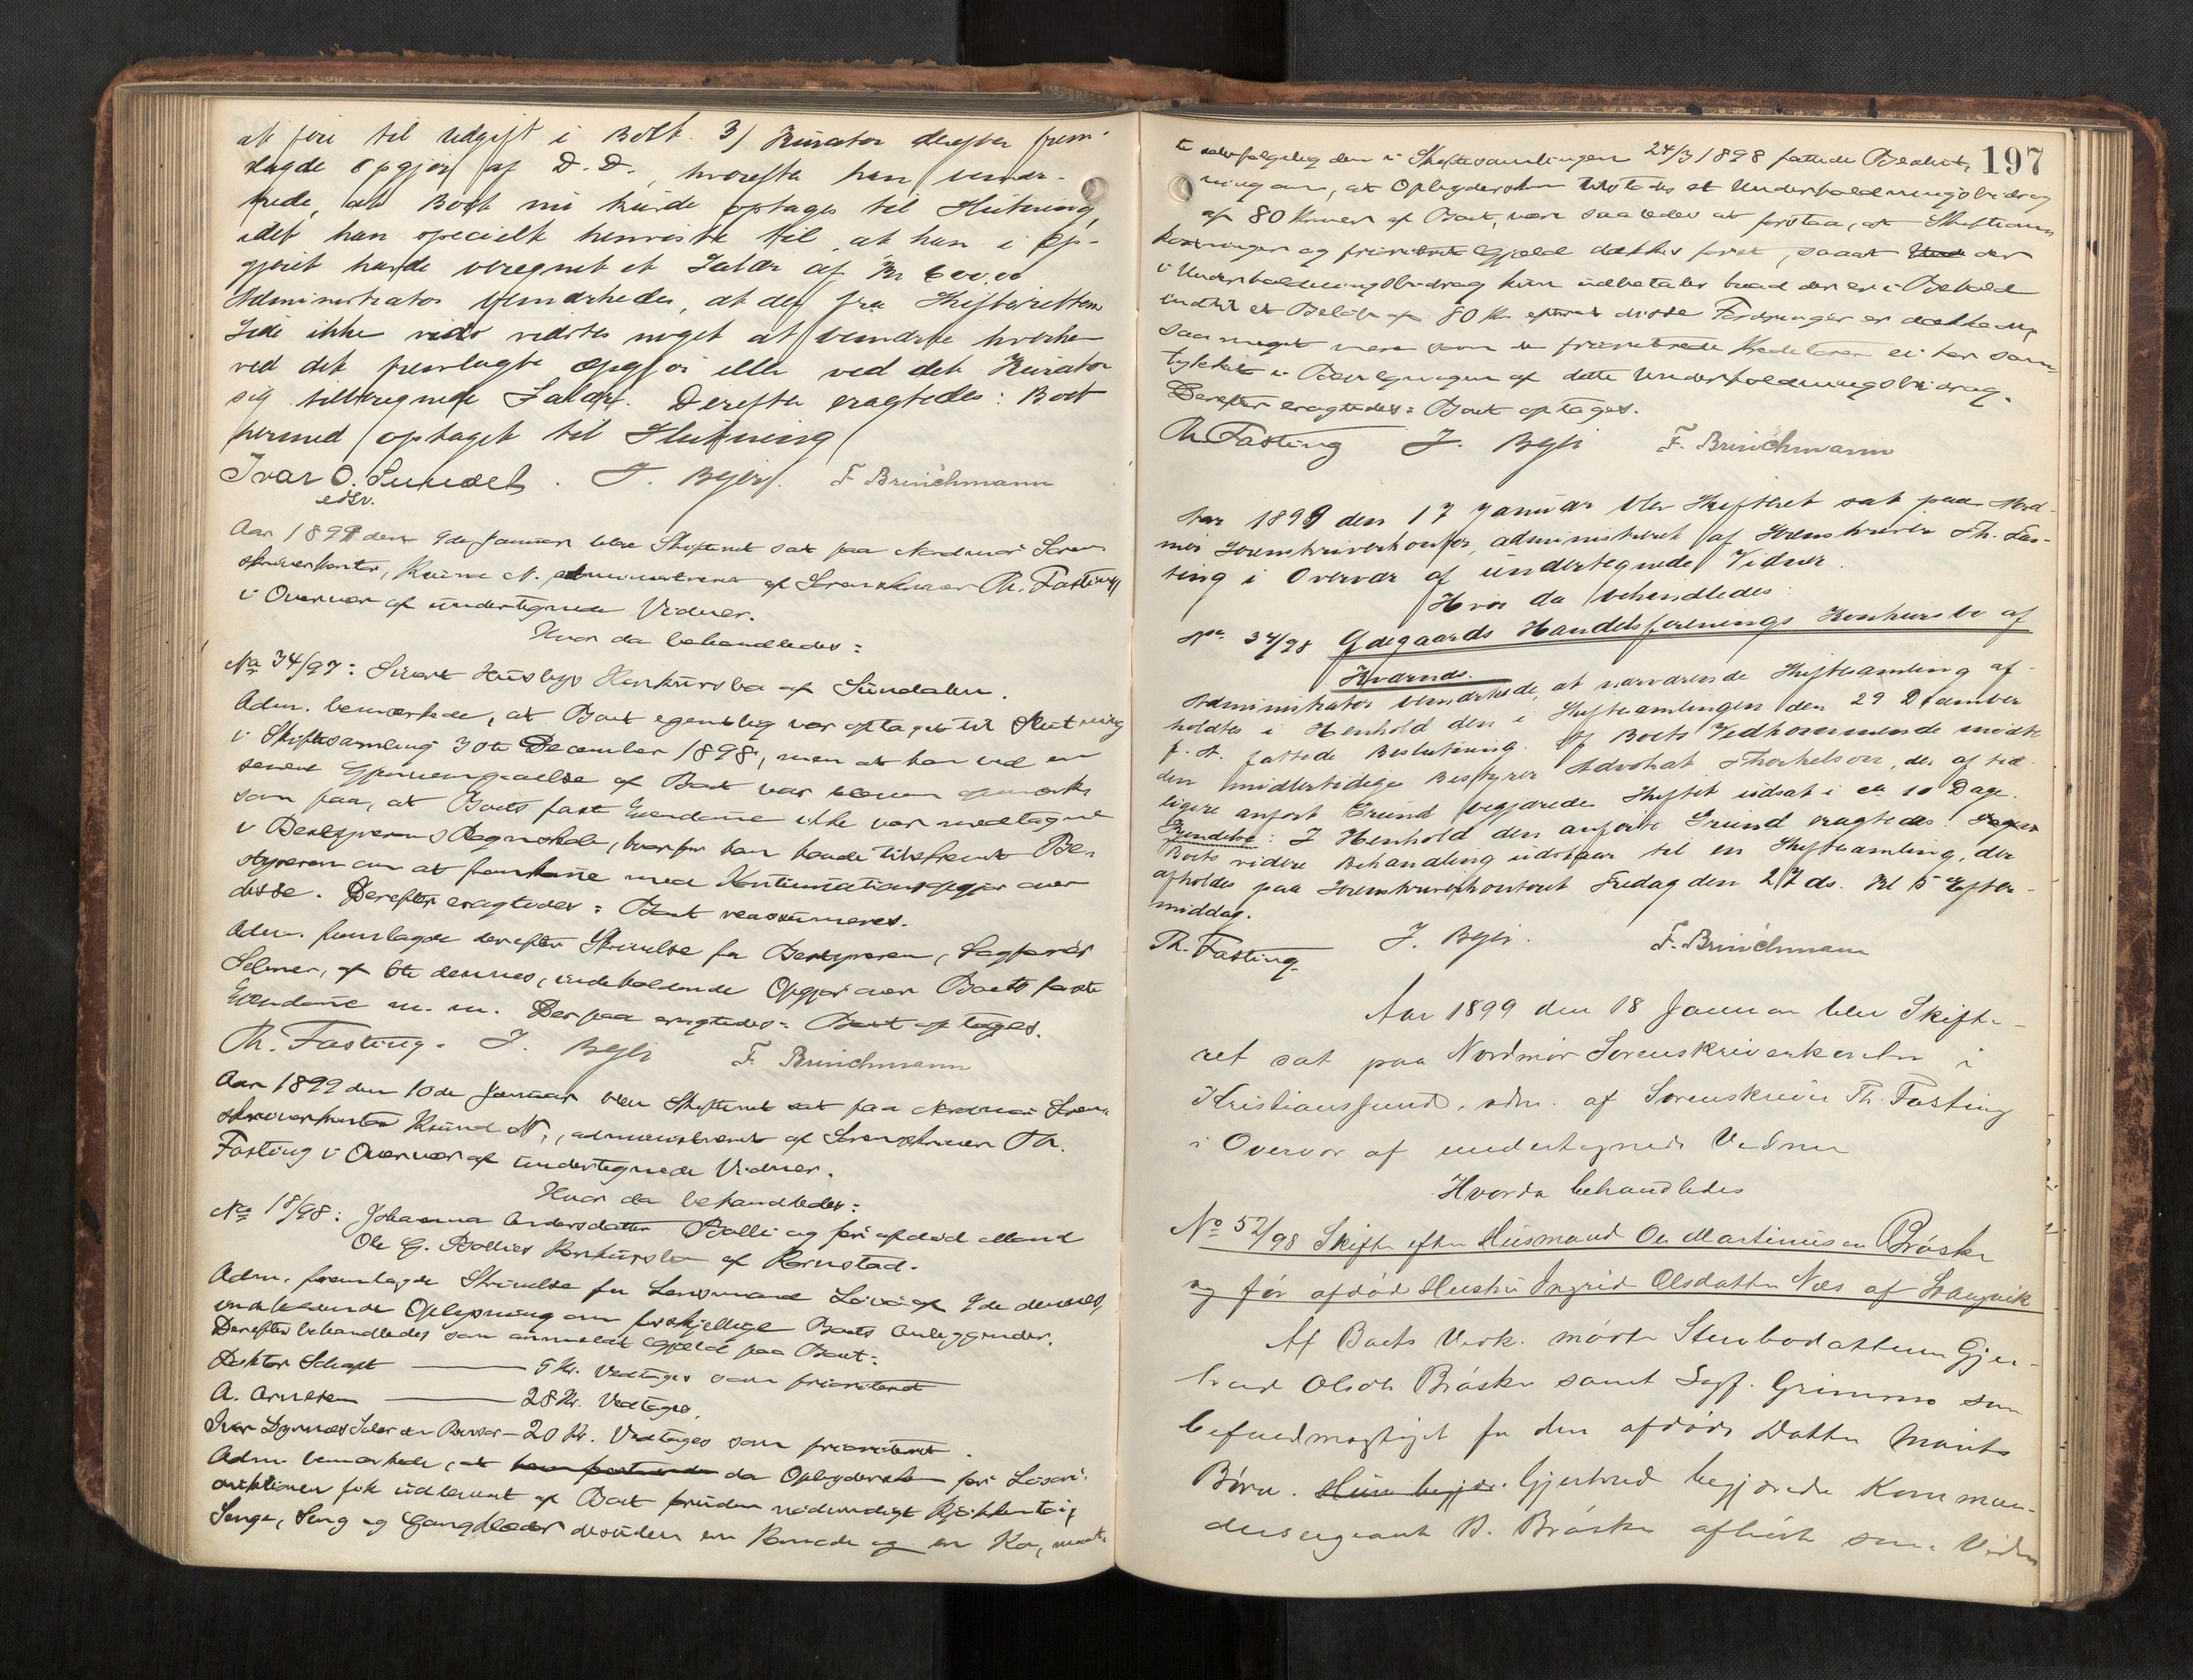 at føre til Udgift i Boet. 3) Kurator derefter frem-
lagde Opgjør af D.D., hvorefter han bemær-
kede, at Boet nu burde optages til Slutning,
idet han specielt henviste til, at han i Op-
gjøret havde beregnet et Salær af Kr 600,00
Administrator bemærkede, at der fra Skifterettens
Side ikke vides noget at bemærke hverken
ved det fremlagte Opgjør eller ved det Kurator
sig tilberegnede Salær. Derefter eragtedes: Boet
hermed optaget til Slutning
Ivar O. Sundet. J. Bgjør. F. Brinchmann
edsv.
Aar 1899 den 9de Januar blev Skifteret sat paa Nordmør Soren-
skriverkontor, Krsund N. administreret af Sorenskriver Th. Fasting
i Overvær af undertegnede Vidner.
Hvor da behandledes:
No 34/97: Sivert Husbys Konkursbo af Sundalen.
Adm. bemærkede, at Boet egentlig var optaget til Slutning
i Skiftesamling 30te December 1898, men at han ved en
senere Gjennemgaaelse af Boet var bleven opmærk-
som paa, at Boets faste Eiendomme ikke var medtagne
i Bestyrerens Regnskab, hvorfor han havde tilskrevet Be-
styreren om at fremkomme med Kontinuationsopgjør over
disse. Derefter eragtedes: Boet reassumeres.
Adm. fremlagde derefter Skrivelse fra Bestyreren, Sagfører
Selmer, af 6te dennes, indeholdende Opgjør over Boets faste
Eiendomme m. m. Derpaa eragtedes: Boet optages.
Th. Fasting. J. Bgjør F. Brinchmann
Aar 1899 den 10de Januar blev Skifteret sat paa Nordmør Soren-
skriverkontor Krsund N., administreret af Sorenskriver Th.
Fasting i Overvær af undertegnede Vidner.
Hvor da behandledes:
No 18/98: Johanna Andersdatter Bolli og før afdød Mand
Ole G. Bollies Konkursbo af Kornstad.
Adm. fremlagde Skrivelse fra Lensmand Løvø af 9de dennes,
indeholdende Oplysning om forskjellige Boets Anliggender.
Derefter behandledes som anmeldt Gjæld paa Boet:
Doktor Schapt — 5 Kr. Vedtages som prioriteret
A. Arnesen — 28 Kr. Vedtages.
Ivar Dyrnes Salær — 20 Kr. Vedtages som prioriteret.
Adm. bemærkede, at da Opbydersken før Løsøre-
auktionen fik udleveret af Boet foruden nødvendigt Kjøkkentøi,
Senge, Seng og Gangklæder desuden en Komode og en Ko,
197
selvfølgelig den i Skiftesamlingen 24/3 1898 fattede Beslut-
ning om, at Opbydersken tilstodes et Underholdningsbidrag
af 80 Kroner af Boet, være saaledes at forstaa, at Skifteom-
kostninger og prioriteret Gjæld dækkes først, saaat der
i Underholdningsbidrag kun udbetales hvad der er i Behold
indtil et Beløb af 80 Kr. efterat disse Fordringer er dækkede,
saa meget mere som de prioriterede Kreditorer ei har sam-
tykket i Bevilgningen af dette Underholdningsbidrag.
Derefter eragtedes: Boet optages.
Th. Fasting J. Bgjør F. Brinchmann
Aar 1899 den 17 Januar blev Skifteret sat paa Nord-
mør Sorenskriverkontor, administreret af Sorenskriver Th. Fas-
ting i Overvær af undertegnede Vidner.
Hvor da behandledes:
No. 34/98 Ødegaards Handelsforenings Konkursbo af
Kvernæs.
Administrator bemærkede, at nærværende Skiftesamling af-
holdtes i Henhold den i Skiftesamlingen den 29 December
f. A. fattede Beslutning. Af Boets Vedkommende mødte
den midlertidige Bestyrer Advokat Thorkelson, der af tid-
ligere anført Grund begjærede Skiftet udsat i ca 10 Dage.
Kjendelse: I Henhold den anførte Grund eragtedes:
Boets videre Behandling udstaar til en Skiftesamling, der
afholdes paa Sorenskriverkontoret Fredag den 27 ds. Kl 5 Efter-
middag.
Th. Fasting. J. Bgjør. F. Brinchmann
Aar 1899 den 18 Januar blev Skifte-
ret sat paa Nordmør Sorenskriverkontor i
Kristianssund, adm. af Sorenskriver Th. Fasting
i Overvær af undertegnede Vidner
Hvorda behandledes
No 52/98 Skifte efter Husmand Ole Martinusen Brøske
og før afdød Hustru Ingrid Olsdatter Næs af Stangvik
Af Boets Vedk. mødte Stervbodatteren Gjer-
trud Olsdtr Brøske samt Sagf. Grimmo som
befuldmægtiget for den afdøde Datter Marits
Børn. Hun begjær. Gjertrud begjærede Komman-
dersergeant B. Brøske afhørt som Vidne